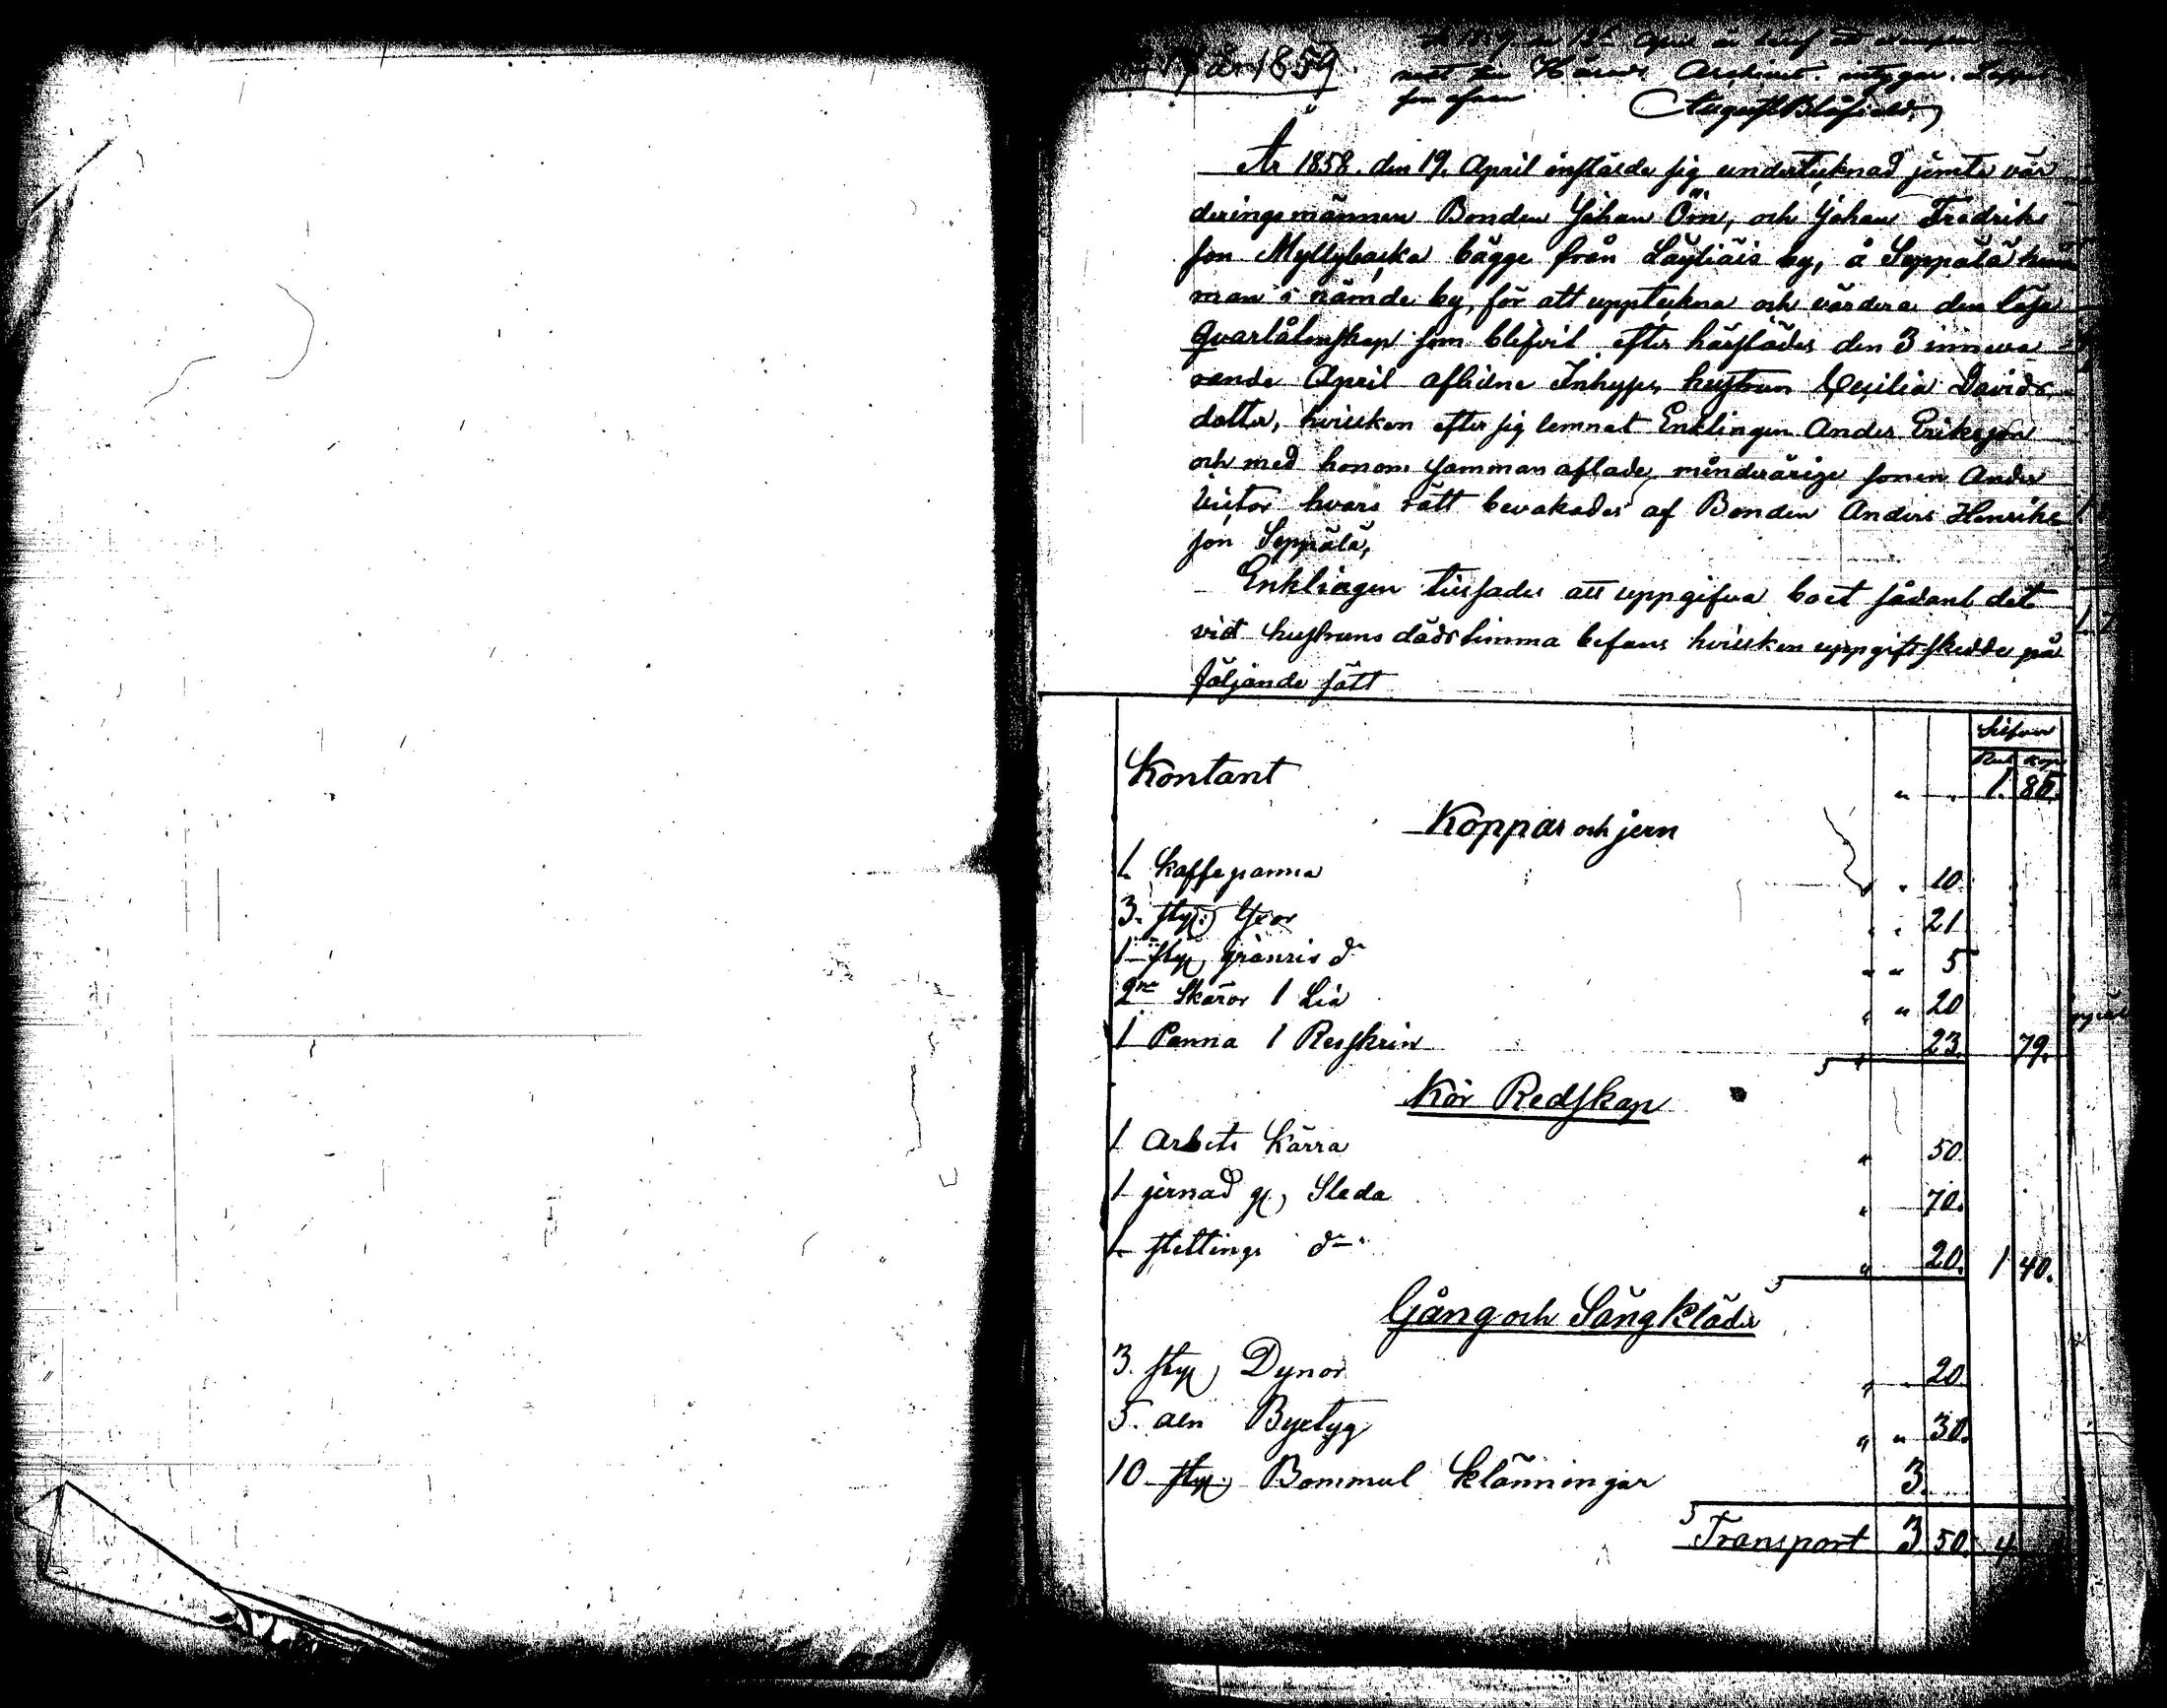 17 år 1859.
nest för Härads Archivet intygar. Loppis
som ofvan August Blåfield
År 1858. den 19. April instälde sig undertecknad jemte vär
deringsmännen Bonden Johan Öm, och Johan Fredriks
son Myllybacka bägge från Läyliäis by, å Seppälä hem
man i nämde by, för att uppteckna och värdera den lösa
qvarlåtenskap som blifvit efter härstädes den 3 inneva
rande April aflidne Inhyses hustrun Cecilia Davids
dotter, hvilken efter sig lemnat Enklingen Anders Eriksson
och med honom samman aflade minderårige sonen Anders
Victor hvars rätt bevakades af Bonden Anders Henriks
son Seppälä,
Enklingen tillsades att uppgifva boet sådant det
vid hustruns dödstimma befans hvilken uppgift skedde på
följande sätt
Silfver
Rub Kop
Kontant " " 1. 85.
Koppar och jern
1 Kaffepanna " " 10.
3. st: Yxor " " 21.
1 st granris do " " 5
2ne Skäror 1 Lia " " 20
1 Panna 1 Resskrin " 23. 79.
Kör Redskap
1 Arbets Kärra " 50.
1 jernad gl, Släda " 70.
1 stettings do " 20. 1 40.
Gång och Sängkläder
3. st Dynor " " 20.
5. aln Byxtyg " " 30.
10 st: Bommul klänningar 3.
Transport 3 50. 4